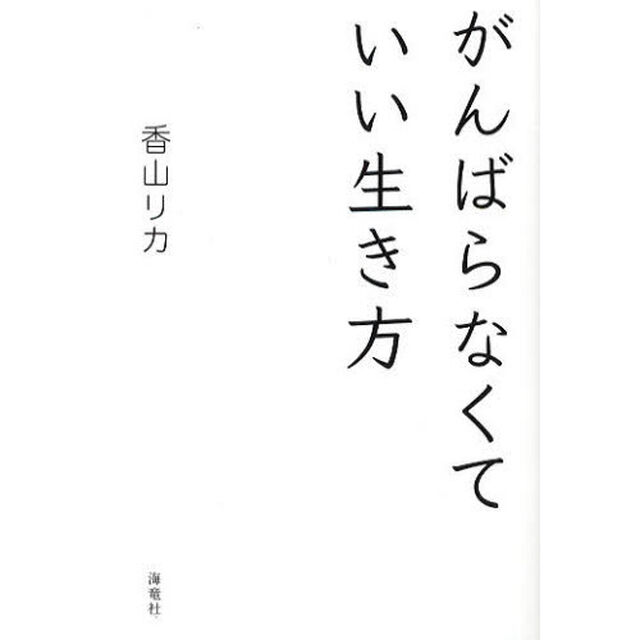 がんばらなくて
いい生き方
香山リカ
海竜社